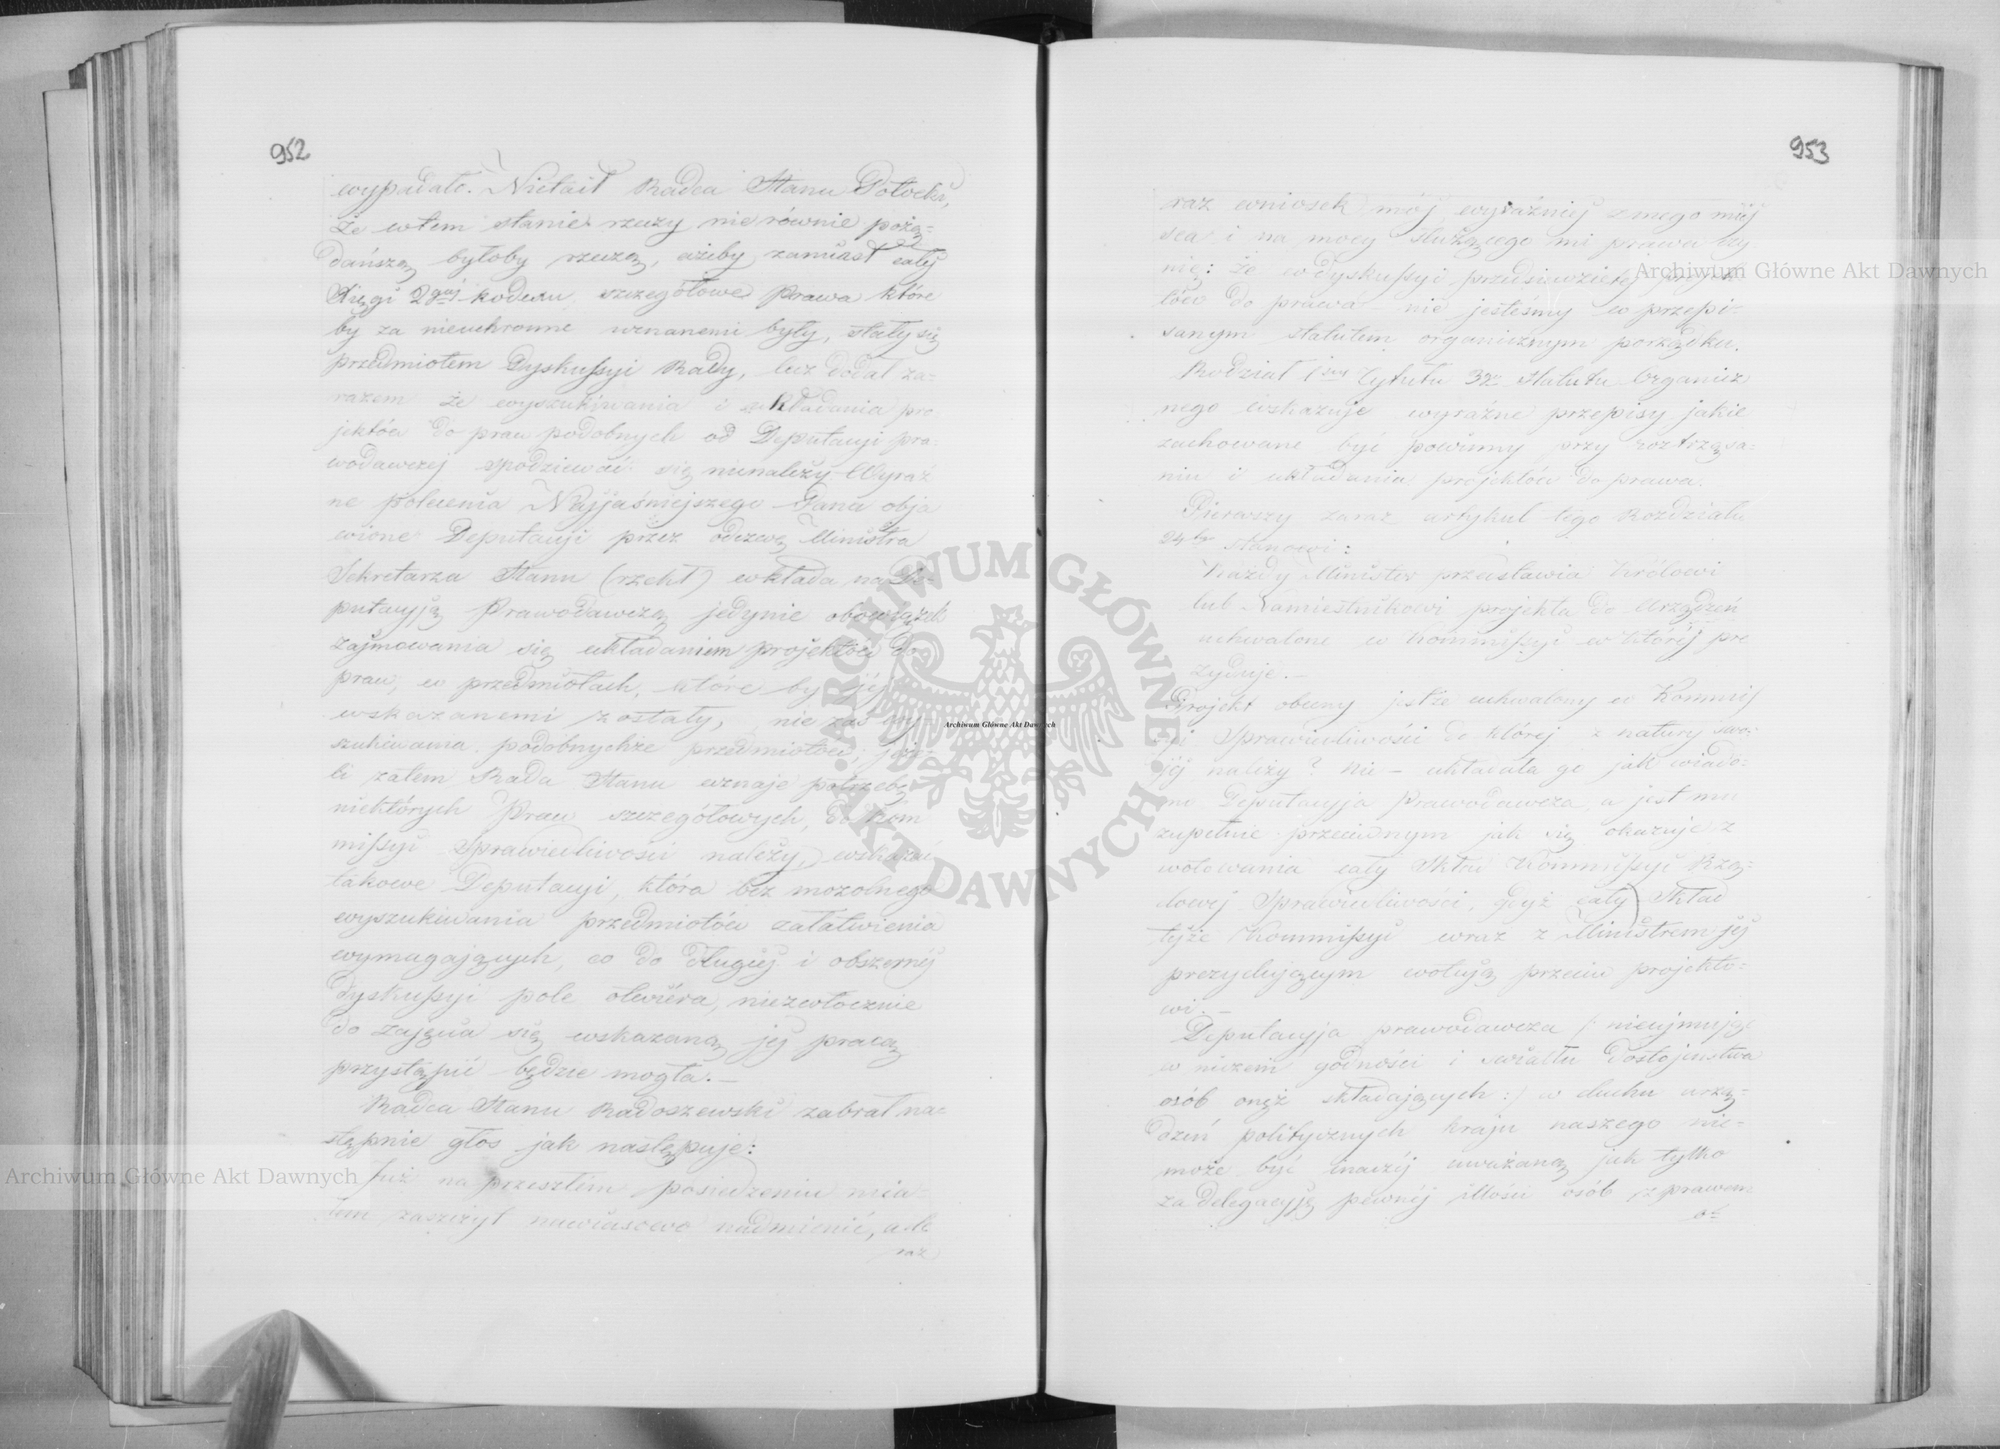 952
wypadało. Nietaił Radca Stanu Potocki,
że w tem stanie rzeczy nierównie pożą-
dańszą byłoby rzeczą, ażeby zamiast całej
Xięgi 2giej kodexu, szczegółowe Prawa które
by za nieuchronne uznanemi były, stały się
przedmiotem Dyskussyi Rady, lecz dodał za-
razem że wyszukiwania i układania pro
jektów do praw podobnych od Deputacyi pra-
wodawczej spodziewać się nienależy. Wyraź
ne polecenia Najjaśniejszego Pana obja
wione Deputacyi przez odezwę Ministra
Sekretarza Stanu (rzekł) wkłada na De-
putacyją Prawodawczą jedynie obowiązek
zajmowania się układaniem projektów do
praw, w przedmiotach, które by jej
wskazanemi zostały, nie zaś wy-
szukiwania podobnychże przedmiotów; jeże-
li zatem Rada Stanu uznaje potrzebę
niektórych Praw szczegółowych, do Kom
missyi Sprawiedliwości należy, wskazać
takowe Deputacyi, która bez mozolnego
wyszukiwania przedmiotów załatwienia
wymagających, co do długiej i obszernej
dyskussyi pole otwiera, niezwłocznie
do zajęcia się wskazaną jej pracą
przystąpić będzie mogła.—
Radca Stanu Radoszewski zabrał na-
stępnie głos jak następuje:
Już na przeszłem posiedzeniu mia-
łem zaszczyt nawiasowo nadmienić, a te
raz
953
raz wniosek mój wyraźniej z mego miej
sca i na mocy służącego mi prawa czy
nię: że w dyskussyi przedsięwziętej projek-
tów do prawa nie jesteśmy w przepi-
sanym statutem organicznym porządku.
Rozdział 1szy Tytułu 3go Statutu Organicz
nego wskazuje wyraźne przepisy jakie
zachowane być powinny przy roztrząsa-
niu i układaniu projektów do prawa.
Pierwszy zaraz artykuł tego Rozdziału
stanowi:
Każdy Minister przedstawia Królowi
lub Namiestnikowi projekta do Urządzeń
uchwalone w Kommissyi w której pre
zyduje.—
Projekt obecny jestże uchwalony w Kommis
syi Sprawiedliwości do której z natury swo-
jej należy? Nie — układała go jak wiado-
mo Deputacyja Prawodawcza, a jest mu
zupełnie przeciwnym jak się okazuje z
wotowania cały Skład Kommissyi Rzą-
dowej Sprawiedliwości, gdyż cały Skład
tejże Kommissyi wraz z Ministrem jej
prezydującym wotują przeciw projekto-
wi.—
Deputacyja prawodawcza (: nieujmując
w niczem godności i światłu dostojeństwa
osób onęż składających:) w duchu urzą-
dzeń politycznych kraju naszego nie-
może być inaczej uważaną jak tylko
za delegacyją pewnej ilości osób z prawem
Archiwum Główne Akt Dawnych
Archiwum Główne Akt Dawnych
Archiwum Główne Akt Dawnych
ARCHIWUM GŁÓWNE
AKT DAWNYCH